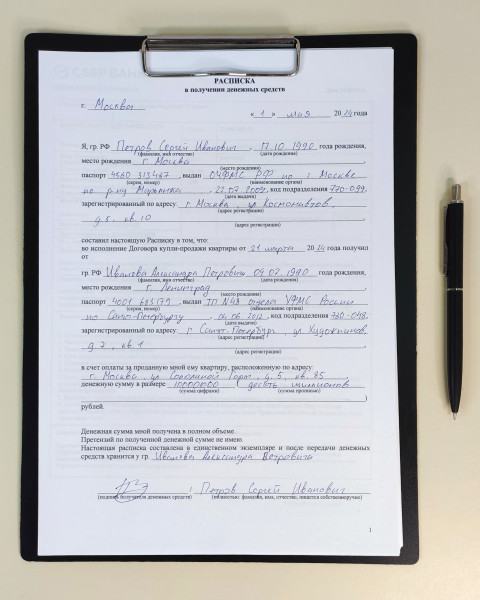 РАСПИСКА
в получении денежных средств
г. Москва
« 1 » мая 2024 года
Я, гр. РФ Петров Сергей Иванович, 17.10 1990 года рождения,
(фамилия, имя отчество) (дата рождения)
место рождения г. Москва
(место рождения)
паспорт 4560 313467, выдан ОУФМС РФ по г. Москве
(серия, номер) (наименование органа)
по р-ну Марьинка, 22.07.2009, код подразделения 770-099,
(дата выдачи)
зарегистрированный по адресу: г. Москва, ул Космонавтов,
(адрес регистрации)
д.5, кв. 10
(адрес регистрации)
составил настоящую Расписку в том, что:
во исполнение Договора купли-продажи квартиры от 21 марта 2024 года получил
от
гр. РФ Иванова Александра Петровича, 09.02.1990 года рождения,
(фамилия, имя отчество) (дата рождения)
место рождения г. Ленинград
(место рождения)
паспорт 4001 683179, выдан ТП №48 отдела УФМС России
(серия, номер) (наименование органа)
по Санкт-Петербургу, 04.06.2012, код подразделения 780-048,
(дата выдачи)
зарегистрированный по адресу: г Санкт-Петербург, ул Художников,
(адрес регистрации)
д.2, кв. 1
(адрес регистрации)
в счет оплаты за проданную мной ему квартиру, расположенную по адресу:
г. Москва, ул. д. 5, кв. 85
денежную сумму в размере 10000000 ( десять миллионов
(сумма цифрами) (сумма прописью)
)
рублей.
Денежная сумма мной получена в полном объеме.
Претензий по полученной денежной сумме не имею.
Настоящая расписка составлена в единственном экземпляре и после передачи денежных
средств хранится у гр. Иванова Александра Петровича
/ Петров Сергей Иванович
(подпись получателя денежных средств) (полностью: фамилия, имя, отчество, пишется собственноручно)
1